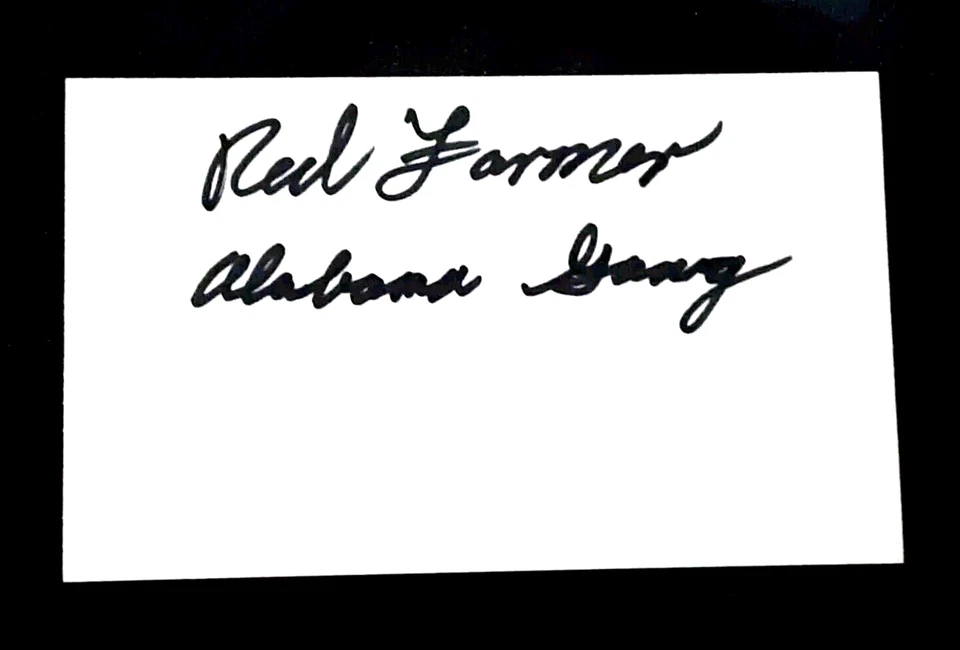 Red Farmer
Alabama Gang